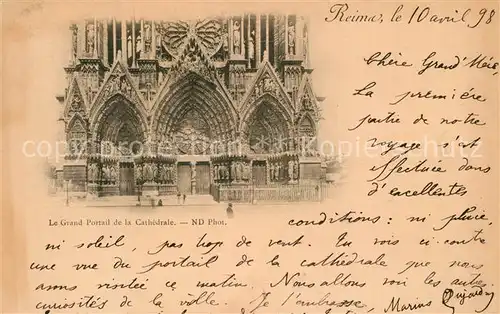 Reims, le 10 avril 98
Chère Grand'Mère
La première
partie de notre
voyage s'est
effectuée dans
d'excellentes
Le Grand Portail de la Cathédrale. — ND Phot.
conditions : ni pluie,
ni soleil, pas trop de vent. Tu vois ci-contre
une vue du portail de la cathédrale que nous
avons visitée ce matin. Nous allons voir les autres
curiosités de la ville. Je t'embrasse, Marius